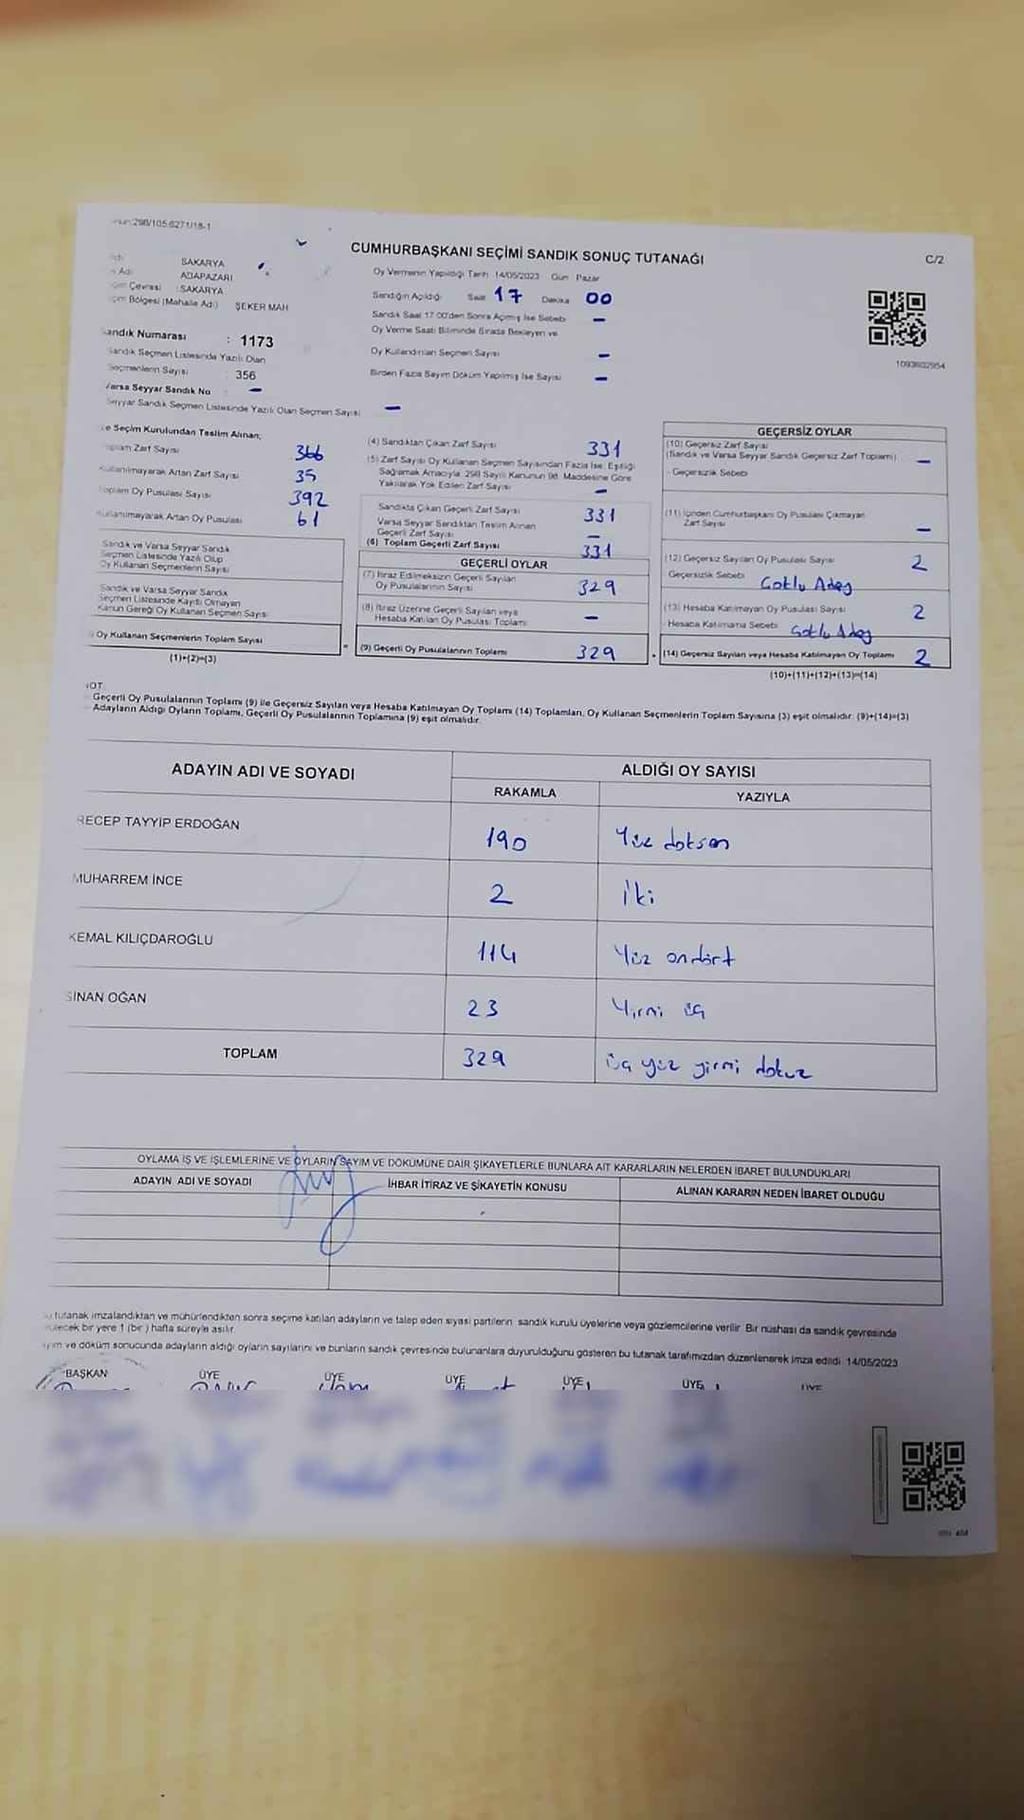 298/105:6271/18-1
CUMHURBAŞKANI SEÇİMİ SANDIK SONUÇ TUTANAĞI
C/2
SAKARYA
Adı ADAPAZARI
Çevresi : SAKARYA
Bölgesi (Mahalle Adı) ŞEKER MAH
Sandık Numarası : 1173
Sandık Seçmen Listesinde Yazılı Olan
Seçmenlerin Sayısı 356
Varsa Seyyar Sandık No –
Seyyar Sandık Seçmen Listesinde Yazılı Olan Seçmen Sayısı –
Oy Vermenin Yapıldığı Tarih 14/05/2023 Gün Pazar
Sandığın Açıldığı Saat 17 Dakika 00
Sandık Saat 17:00'den Sonra Açılmış İse Sebebi –
Oy Verme Saati Bitiminde Sırada Bekleyen ve
Oy Kullandırılan Seçmen Sayısı –
Birden Fazla Sayım Döküm Yapılmış İse Sayısı –
1093602954
İlçe Seçim Kurulundan Teslim Alınan;
Toplam Zarf Sayısı 366
Kullanılmayarak Artan Zarf Sayısı 35
Toplam Oy Pusulası Sayısı 392
Kullanılmayarak Artan Oy Pusulası 61
Sandık ve Varsa Seyyar Sandık
Seçmen Listesinde Yazılı Olup
Oy Kullanan Seçmenlerin Sayısı
Sandık ve Varsa Seyyar Sandık
Seçmen Listesinde Kayıtlı Olmayan
Kanun Gereği Oy Kullanan Seçmen Sayısı
Oy Kullanan Seçmenlerin Toplam Sayısı
(1)+(2)=(3)
(4) Sandıktan Çıkan Zarf Sayısı 331
(5) Zarf Sayısı Oy Kullanan Seçmen Sayısından Fazla İse, Eşitliği
Sağlamak Amacıyla, 298 Sayılı Kanunun 98. Maddesine Göre
Yakılarak Yok Edilen Zarf Sayısı –
Sandıkta Çıkan Geçerli Zarf Sayısı 331
Varsa Seyyar Sandıktan Teslim Alınan
Geçerli Zarf Sayısı –
(6) Toplam Geçerli Zarf Sayısı 331
GEÇERLİ OYLAR
(7) İtiraz Edilmeksizin Geçerli Sayılan
Oy Pusulalarının Sayısı 329
(8) İtiraz Üzerine Geçerli Sayılan veya
Hesaba Katılan Oy Pusulası Toplamı –
(9) Geçerli Oy Pusulalarının Toplamı 329
GEÇERSİZ OYLAR
(10) Geçersiz Zarf Sayısı
(Sandık ve Varsa Seyyar Sandık Geçersiz Zarf Toplamı) –
Geçersizlik Sebebi
(11) İçinden Cumhurbaşkanı Oy Pusulası Çıkmayan
Zarf Sayısı –
(12) Geçersiz Sayılan Oy Pusulası Sayısı 2
Geçersizlik Sebebi
(13) Hesaba Katılmayan Oy Pusulası Sayısı 2
Hesaba Katılmama Sebebi
(14) Geçersiz Sayılan veya Hesaba Katılmayan Oy Toplamı 2
(10)+(11)+(12)+(13)=(14)
NOT:
Geçerli Oy Pusulalarının Toplamı (9) ile Geçersiz Sayılan veya Hesaba Katılmayan Oy Toplamı (14) Toplamları, Oy Kullanan Seçmenlerin Toplam Sayısına (3) eşit olmalıdır. (9)+(14)=(3)
Adayların Aldığı Oyların Toplamı, Geçerli Oy Pusulalarının Toplamına (9) eşit olmalıdır.
ADAYIN ADI VE SOYADI
ALDIĞI OY SAYISI
RAKAMLA YAZIYLA
RECEP TAYYİP ERDOĞAN 190 Yüz doksan
MUHARREM İNCE 2 iki
KEMAL KILIÇDAROĞLU 114 Yüz ondört
SİNAN OĞAN 23 Yirmi üç
TOPLAM 329 üç yüz yirmi dokuz
OYLAMA İŞ VE İŞLEMLERİNE VE OYLARIN SAYIM VE DÖKÜMÜNE DAİR ŞİKAYETLERLE BUNLARA AİT KARARLARIN NELERDEN İBARET BULUNDUKLARI
ADAYIN ADI VE SOYADI
İHBAR İTİRAZ VE ŞİKAYETİN KONUSU
ALINAN KARARIN NEDEN İBARET OLDUĞU
tutanak imzalandıktan ve mühürlendikten sonra seçime katılan adayların ve talep eden siyasi partilerin sandık kurulu üyelerine veya gözlemcilerine verilir. Bir nüshası da sandık çevresinde
bir yere 1 (bir) hafta süreyle asılır.
ve döküm sonucunda adayların aldığı oyların sayılarını ve bunların sandık çevresinde bulunanlara duyurulduğunu gösteren bu tutanak tarafımızdan düzenlenerek imza edildi. 14/05/2023
BAŞKAN ÜYE ÜYE ÜYE ÜYE ÜYE ÜYE